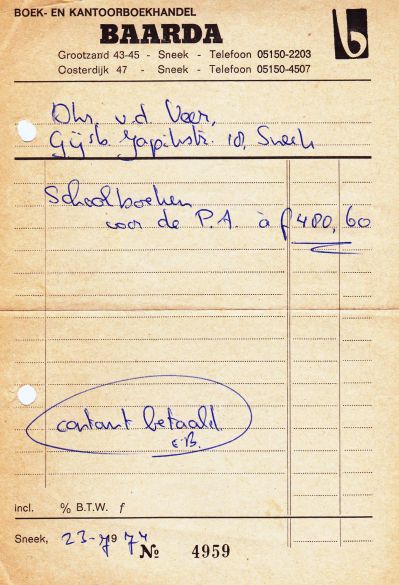 BOEK- EN KANTOORBOEKHANDEL
BAARDA
Grootzand 43-45 - Sneek - Telefoon 05150-2203
Oosterdijk 47 - Sneek - Telefoon 05150-4507
b
Dhr. v.d. Veer,
Gijsb. Japikstr. 18, Sneek
Schoolboeken
voor de P.A. à ƒ 480,60
contant betaald.
E.B.
incl. % B.T.W. ƒ
Sneek, 23-7 1974
№ 4959